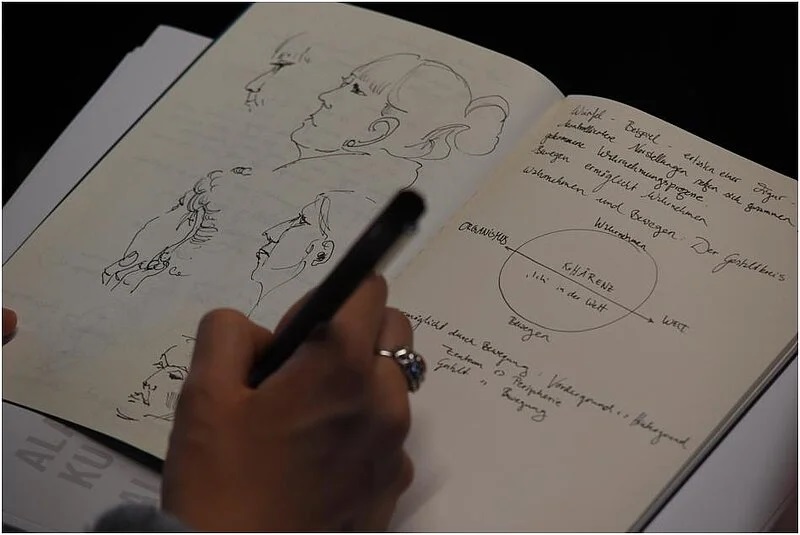 Würfel - Beispiel - ertasten einer Figur -
kontrollierte Vorstellungen setzen sich zusammen
gekommene Wahrnehmungsprozesse.
Bewegen ermöglicht Wahrnehmen
Wahrnehmen und Bewegen. Der Gestaltkreis
Wahrnehmen
ORGANISMUS
KOHÄRENZ
"Ich" in der Welt
WELT
Bewegen
ermöglicht durch Bewegung. Vordergrund Hintergrund
Zentrum Peripherie
Gestalt Bewegung
ALL
KU
AL